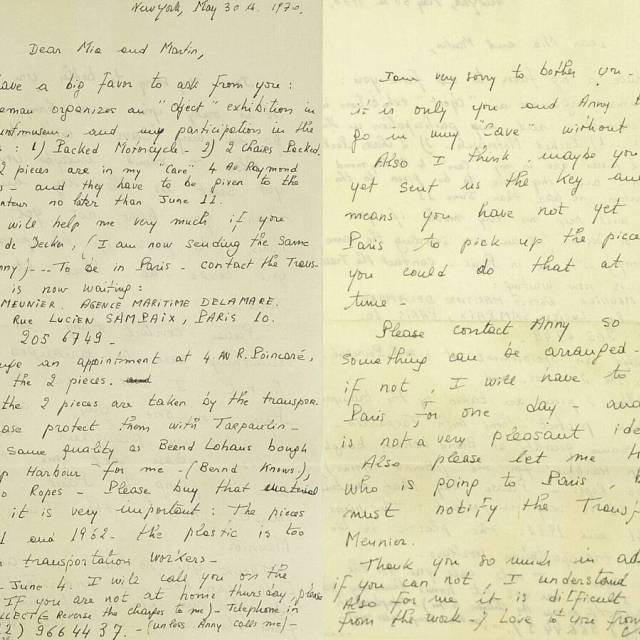 New York, May 30 th. 1970.
Dear Mia and Martin,
have a big favor to ask from you:
eman organizes an "Object" exhibition in
unstmuseum, and my participation in the
s: 1) Packed Motorcycle - 2) 2 chairs Packed.
2 pieces are in my "Cave" 4 Av Raymond
s - and they have to be given to the
enteur no later than June 11.
will help me very much if you
de Decker, (I am now sending the same
nny) --- To be in Paris - contact the Trans-
is now waiting:
MEUNIER. AGENCE MARITIME DELAMARE.
Rue LUCIEN SAMPAIX, PARIS 10.
205 6749.-
an appointment at 4 AV R. Poincaré,
the 2 pieces.
the 2 pieces are taken by the transpor.
ase protect them with Tarpaulin -
same quality as Bernd Lohaus bough
p Harbour for me - (Bernd Knows.),
o Ropes - Please buy that
it is very important: The pieces
1 and 1962 - the plastic is too
transportation workers -
- June 4. I will call you on the
IF you are not at home thursday, please
LLECT (Reverse the charges to me) - Telephone in
2) 966 44 37. - (unless Anny calls me) -
I am very sorry to bother you -
it is only you and Anny t
go in my "Cave" without
Also I think maybe you
yet sent us the key an
means you have not yet
Paris to pick up the piece
you could do that at
time -
Please contact Anny so
something can be arranged -
if not, I will have to
Paris for one day - and
is not a very pleasant ide
Also please let me k
who is going to Paris,
must notify the Transp
Meunier.
Thank you so much in ad
if you can not, I understand
Also for me it is difficult
from the work -) Love to you from